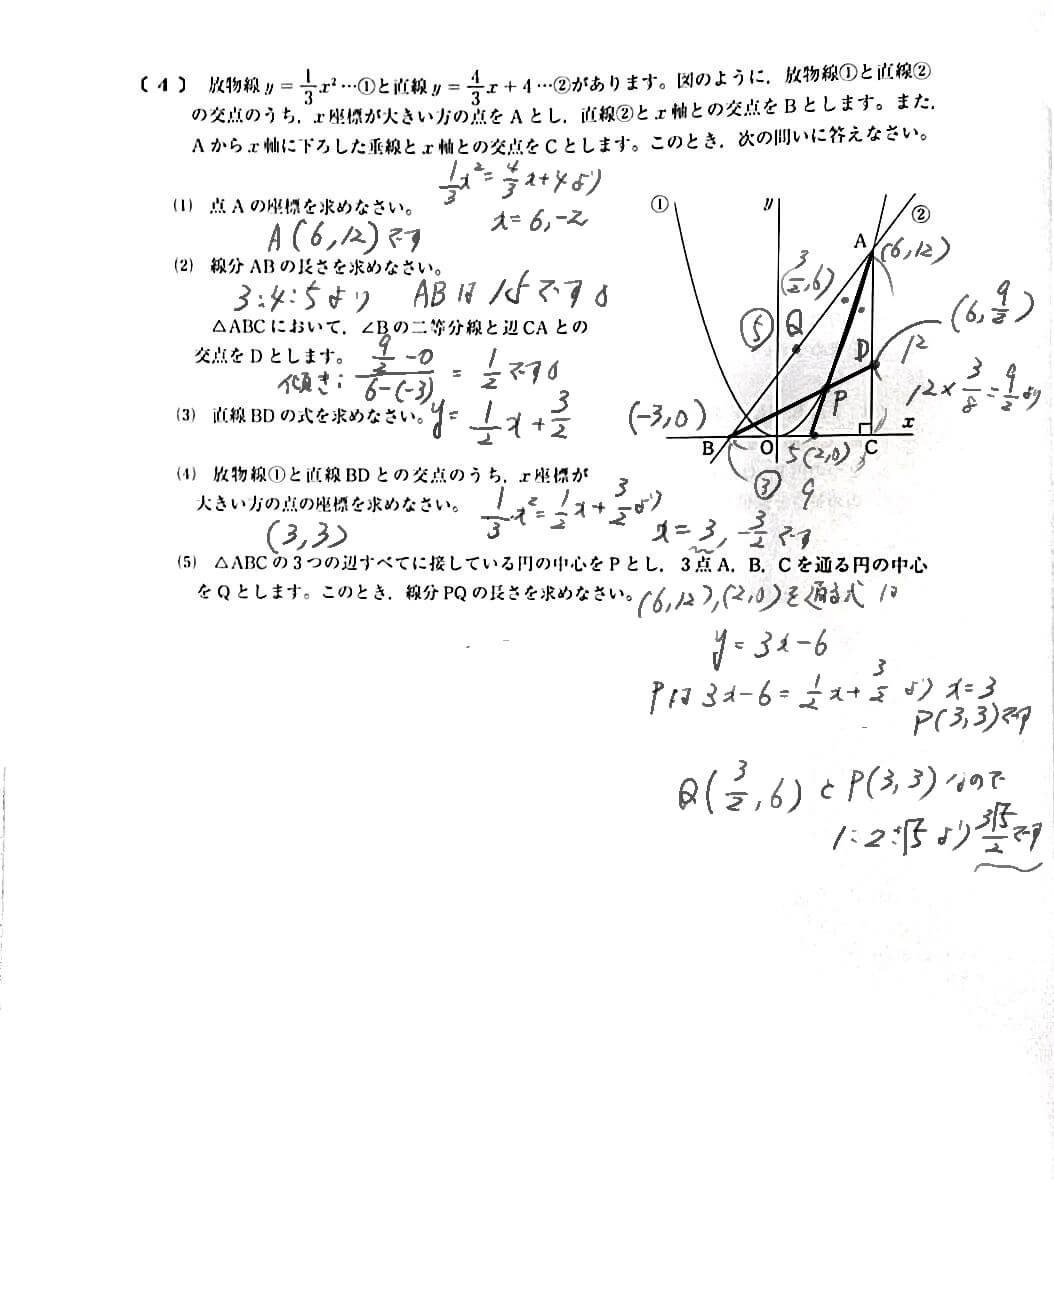 〔4〕 放物線 y = 1/3 x² …①と直線 y = 4/3 x + 4 …②があります。図のように，放物線①と直線②
の交点のうち，x 座標が大きい方の点を A とし，直線②と x 軸との交点を B とします。また，
A から x 軸に下ろした垂線と x 軸との交点を C とします。このとき，次の問いに答えなさい。
1/3 x² = 4/3 x + 4 より
x = 6, -2
(1) 点 A の座標を求めなさい。
A (6, 12) です
(2) 線分 AB の長さを求めなさい。
3:4:5 より AB は 15 です。
△ABC において，∠B の二等分線と辺 CA との
交点を D とします。
傾き: (9/2 - 0)/(6-(-3)) = 1/2 です。
(3) 直線 BD の式を求めなさい。
y = 1/2 x + 3/2
(4) 放物線①と直線 BD との交点のうち，x 座標が
大きい方の点の座標を求めなさい。
1/3 x² = 1/2 x + 3/2 より
x = 3, -3/2 です
(3, 3)
① y ②
A (6, 12)
(3/2, 6)
⑤ Q
(6, 9/2)
D 12
12 × 3/8 = 9/2 より
P
(-3, 0)
x
B O 5 (2,0) 3 C
③ 9
(5) △ABC の 3 つの辺すべてに接している円の中心を P とし，3 点 A，B，C を通る円の中心
を Q とします。このとき，線分 PQ の長さを求めなさい。
(6, 12), (2, 0) を通る式は
y = 3x - 6
P は 3x - 6 = 1/2 x + 3/2 より x = 3
P (3, 3) です
Q (3/2, 6) と P (3, 3) なので
1:2:√5 より 3√5/2 です